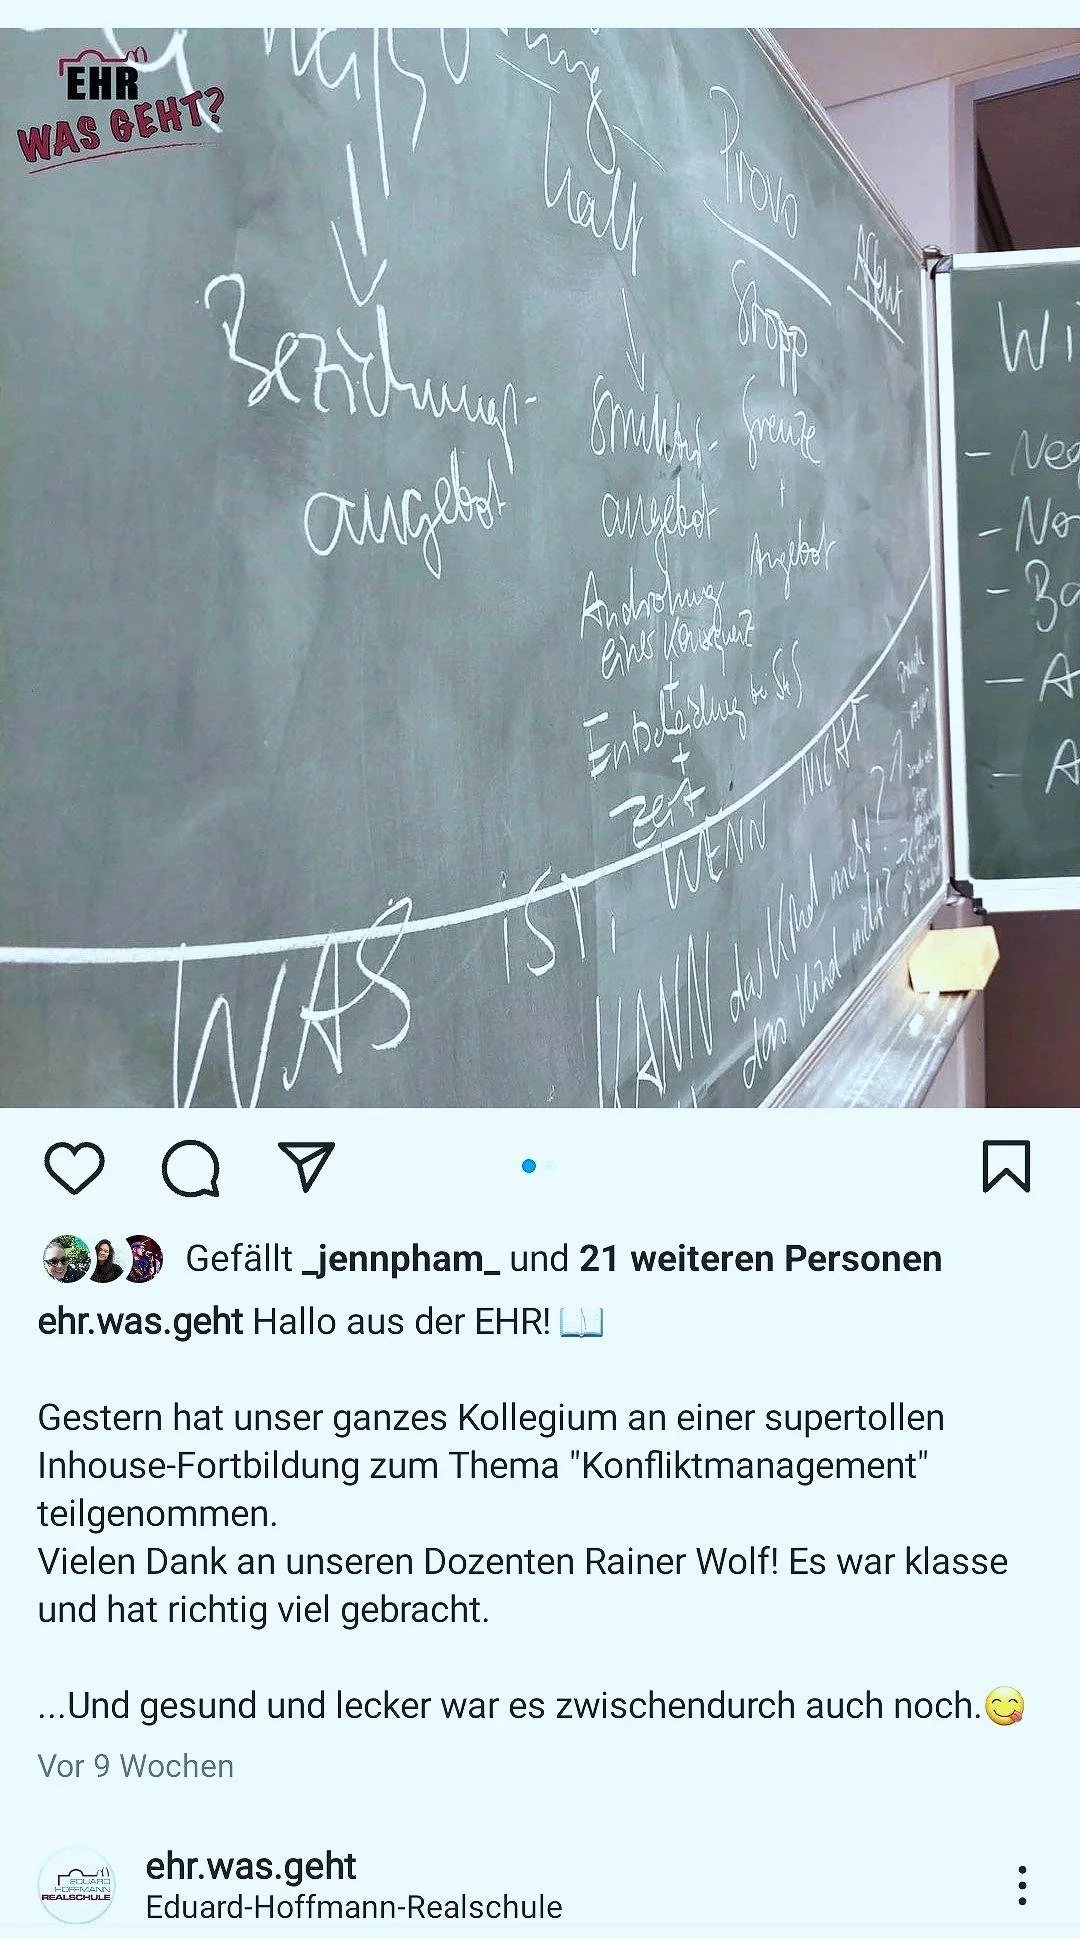 EHR
WAS GEHT?
halt
Provo
Affekt
Beziehungs-
angebot
Struktur-
angebot
Androhung
einer Konsequenz
+
Entscheidung bei SuS
+
Zeit
Stopp
Grenze
+
Angebot
WAS IST, WENN NICHT
KANN das Kind nicht?
das Kind nicht?
Wi
- Neg
- No
- Ba
- A
- A
Gefällt _jennpham_ und 21 weiteren Personen
ehr.was.geht Hallo aus der EHR! 📖
Gestern hat unser ganzes Kollegium an einer supertollen
Inhouse-Fortbildung zum Thema "Konfliktmanagement"
teilgenommen.
Vielen Dank an unseren Dozenten Rainer Wolf! Es war klasse
und hat richtig viel gebracht.
...Und gesund und lecker war es zwischendurch auch noch.😋
Vor 9 Wochen
EDUARD
HOFFMANN
REALSCHULE
ehr.was.geht
Eduard-Hoffmann-Realschule